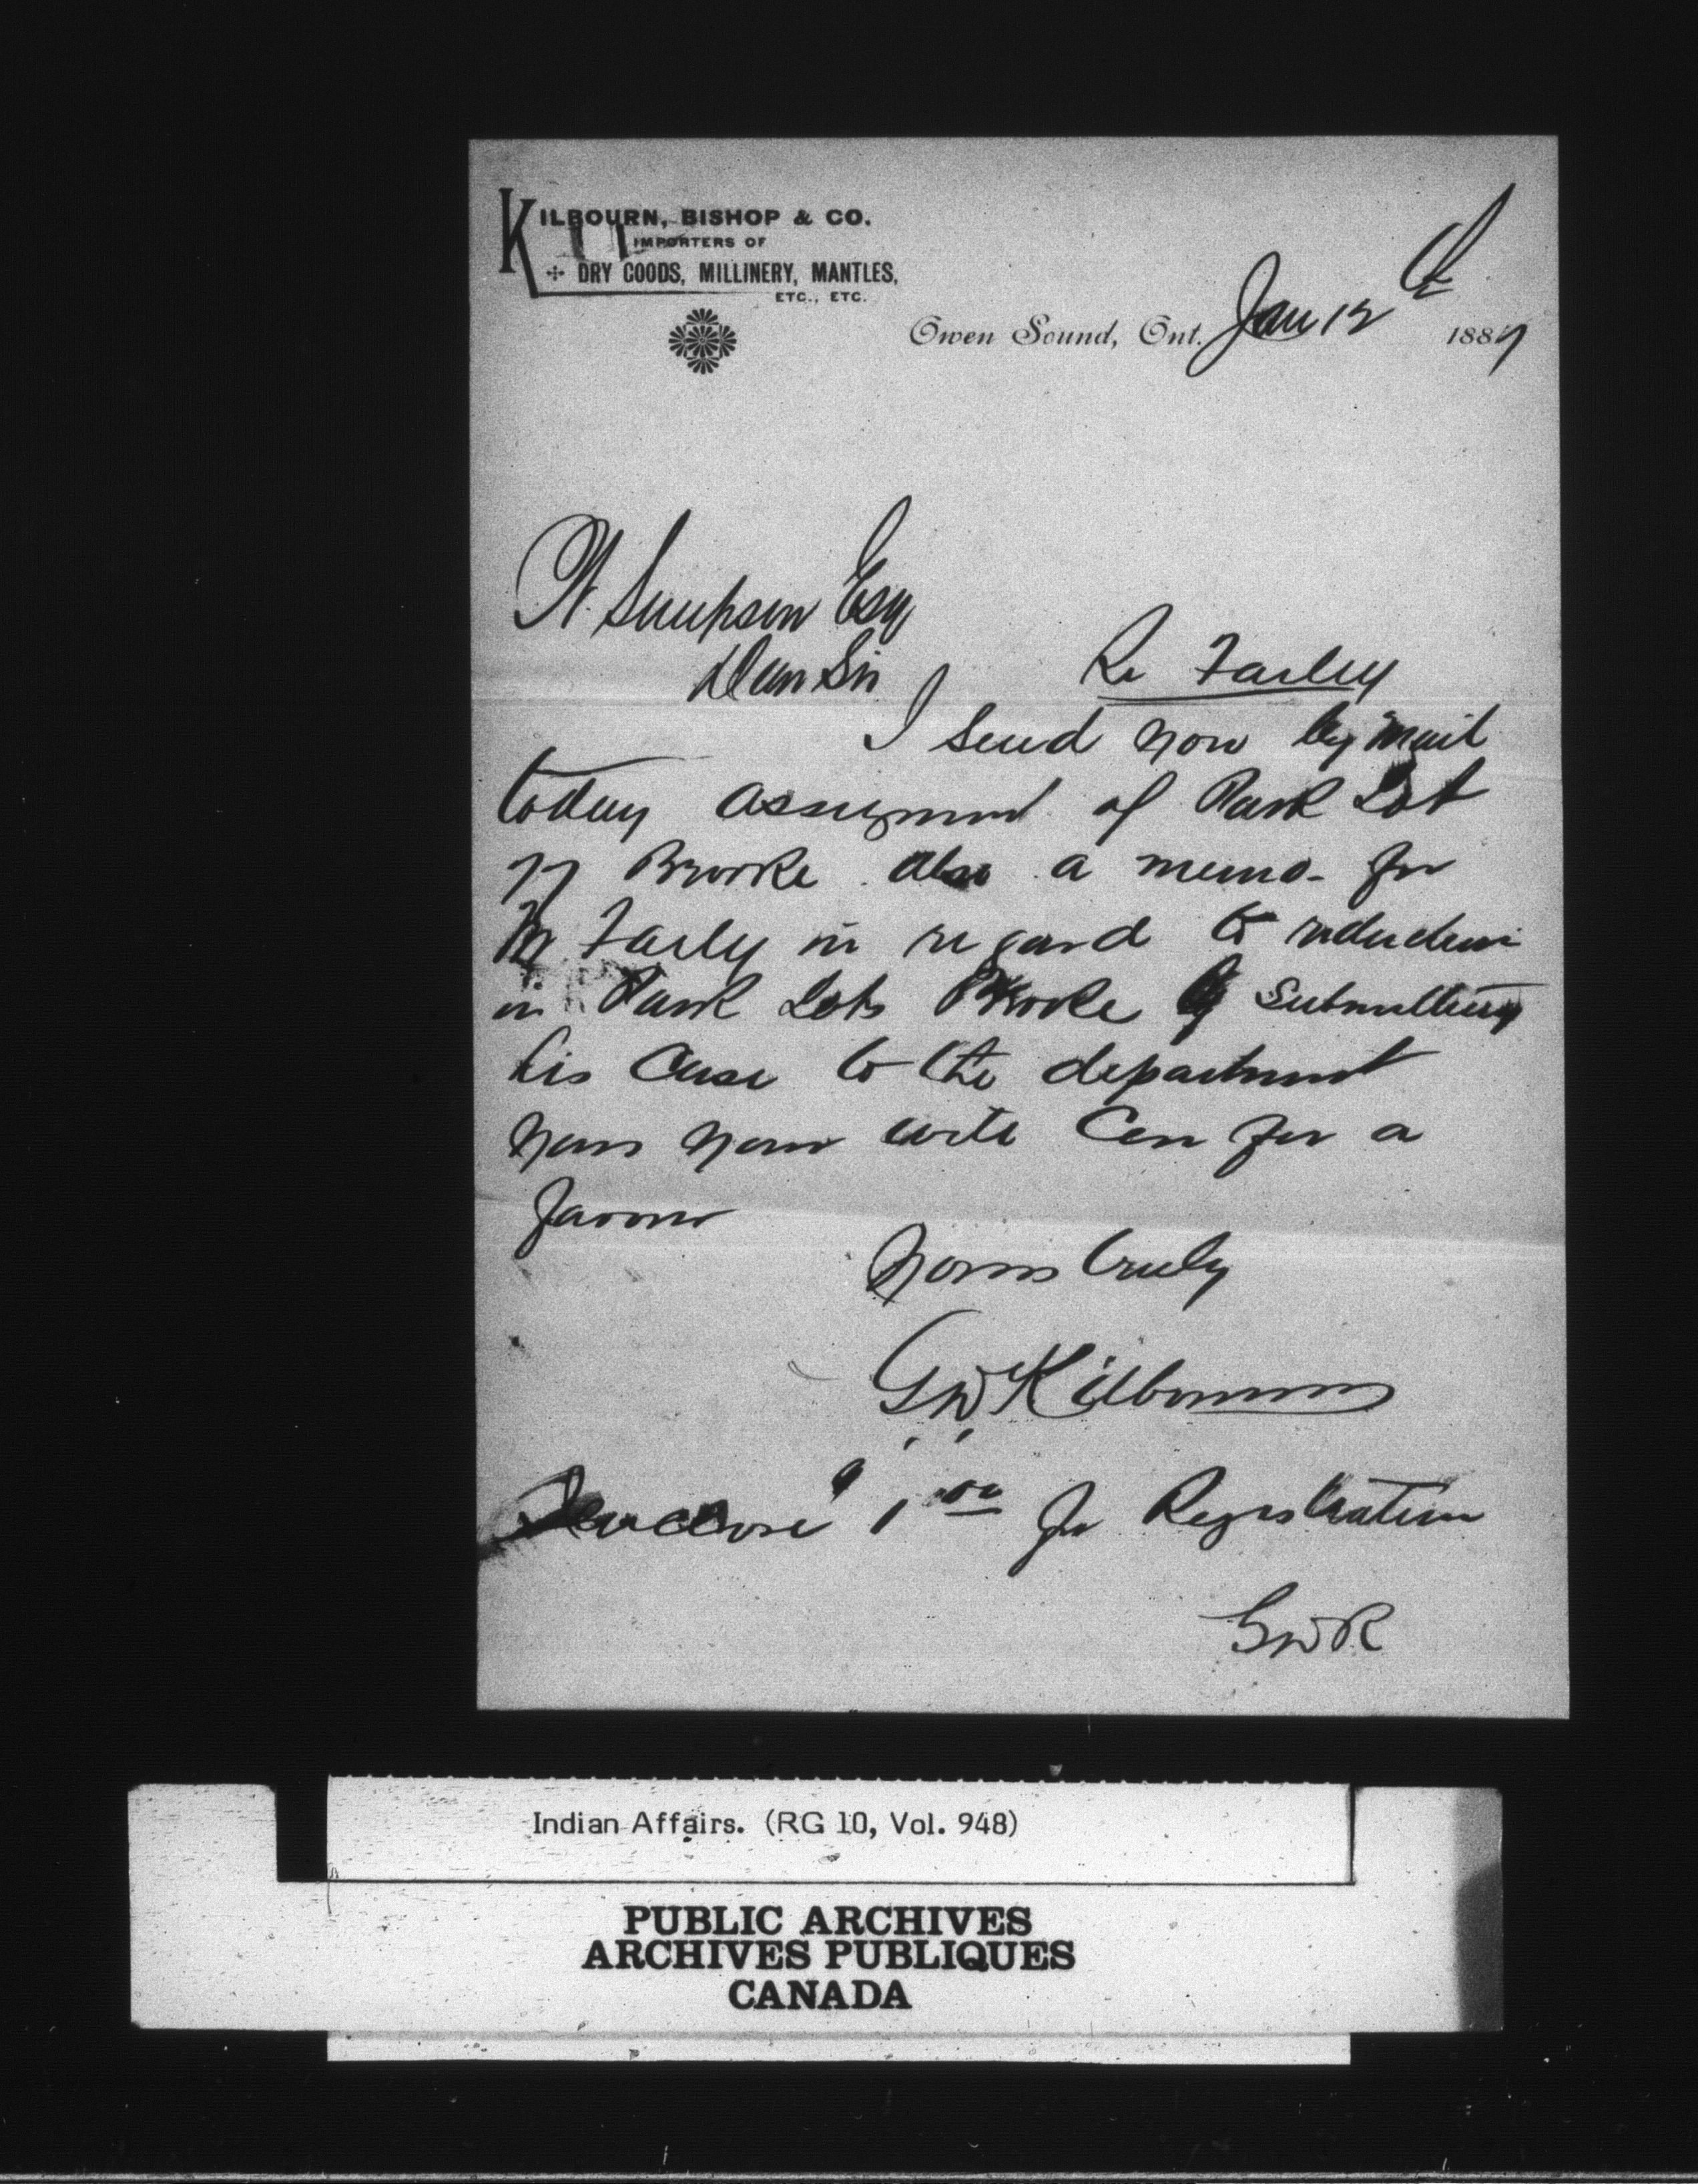 KILBOURN, BISHOP & CO.
IMPORTERS OF
DRY GOODS, MILLINERY, MANTLES,
ETC., ETC.
Owen Sound, Ont. Jan 12th 1887
W. Simpson Esq
Dear Sir
Re Farley
I send you by mail
today assignment of Park Lot
77 Brooke also a memo- for
Mr Farley in regard to reduction
in Park Lots Brooke by submitting
his case to the department
now you will Confer a
favour
Yours truly
GW Kilbourn
Enclose 1 00 for Registration
GWK
Indian Affairs. (RG 10, Vol. 948)
PUBLIC ARCHIVES
ARCHIVES PUBLIQUES
CANADA